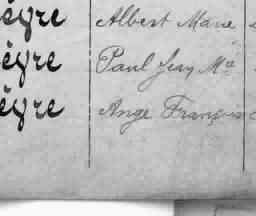 èyre Albert Marie
èyre Paul Jean Mie
èyre Ange François